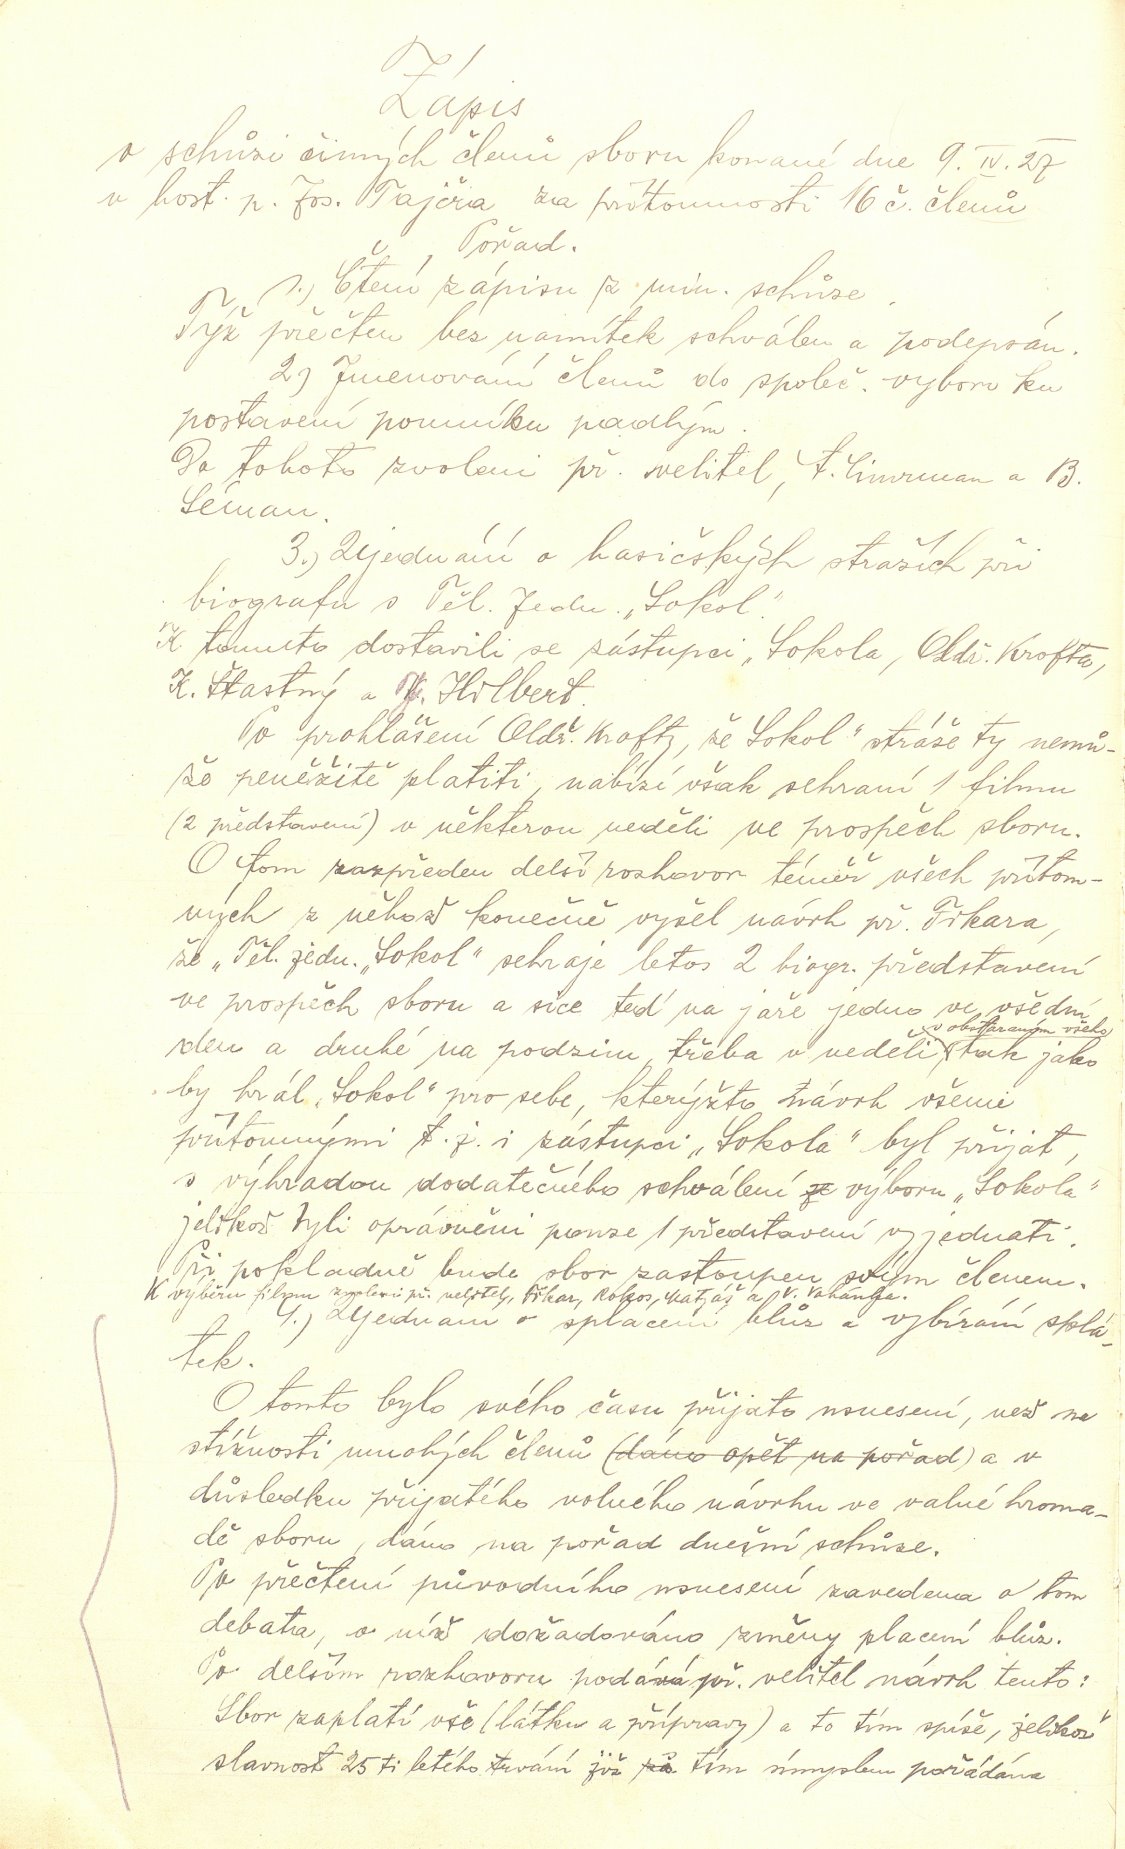 Zápis
o schůzi činných členů sboru konané dne 9. IV. 27
v host. p. Jos. Tajčra za přítomnosti 16 č. členů
Pořad.
1.) Čtení zápisu z min. schůze.
Týž přečten bez námitek schválen a podepsán.
2) Jmenování členů do společ. výboru ku
postavení pomníku padlým.
Do tohoto zvoleni př. velitel, F. Cimrman a B.
Léman.
3.) Ujednání o hasičských strážích při
biografu s Těl. Jedn. „Sokol".
K tomuto dostavili se zástupci „Sokola, Oldř. Krofta,
K. Šťastný a Hilbert.
Po prohlášení Oldř. Krofty, že Sokol" stráže ty nemů-
že peněžitě platiti, nabízí však sehraní 1 filmu
(2 představení) v některou neděli ve prospěch sboru.
O tom rozpředen delší rozhovor téměř všech přítom-
ných z něhož konečně vyšel návrh př. Fikara,
že „Těl. jedn. „Sokol" sehraje letos 2 biogr. představení
ve prospěch sboru a sice teď na jaře jedno ve všední
s obstaráním všeho
den a druhé na podzim, třeba v neděli, tak jako
by hrál „Sokol" pro sebe, kterýžto návrh všemi
přítomnými t. j. i zástupci „Sokola" byl přijat,
s výhradou dodatečného schválení výboru „Sokola"
jelikož byli oprávněni pouze 1 představení vyjednati.
Při pokladně bude sbor zastoupen svým členem.
K výběru filmu zvoleni př. velitel, Fikar, Kokos, Matjáš a V. Vaňanka.
4.) Ujednání o splacení blůz a vybírání splá-
tek.
O tomto bylo svého času přijato usnesení, než na
stížnosti mnohých členů (dáno opět na pořad) a v
důsledku přijatého volného návrhu ve valné hroma-
dě sboru, dáno na pořad dnešní schůze.
Po přečtení původního usnesení zavedena o tom
debata, o níž dožadováno změny placení blůz.
Po delším rozhovoru podává př. velitel návrh tento:
Sbor zaplatí vše (látku a přípravy) a to tím spíše, jelikož
slavnost 25 ti letého trvání již tím úmyslem pořádána